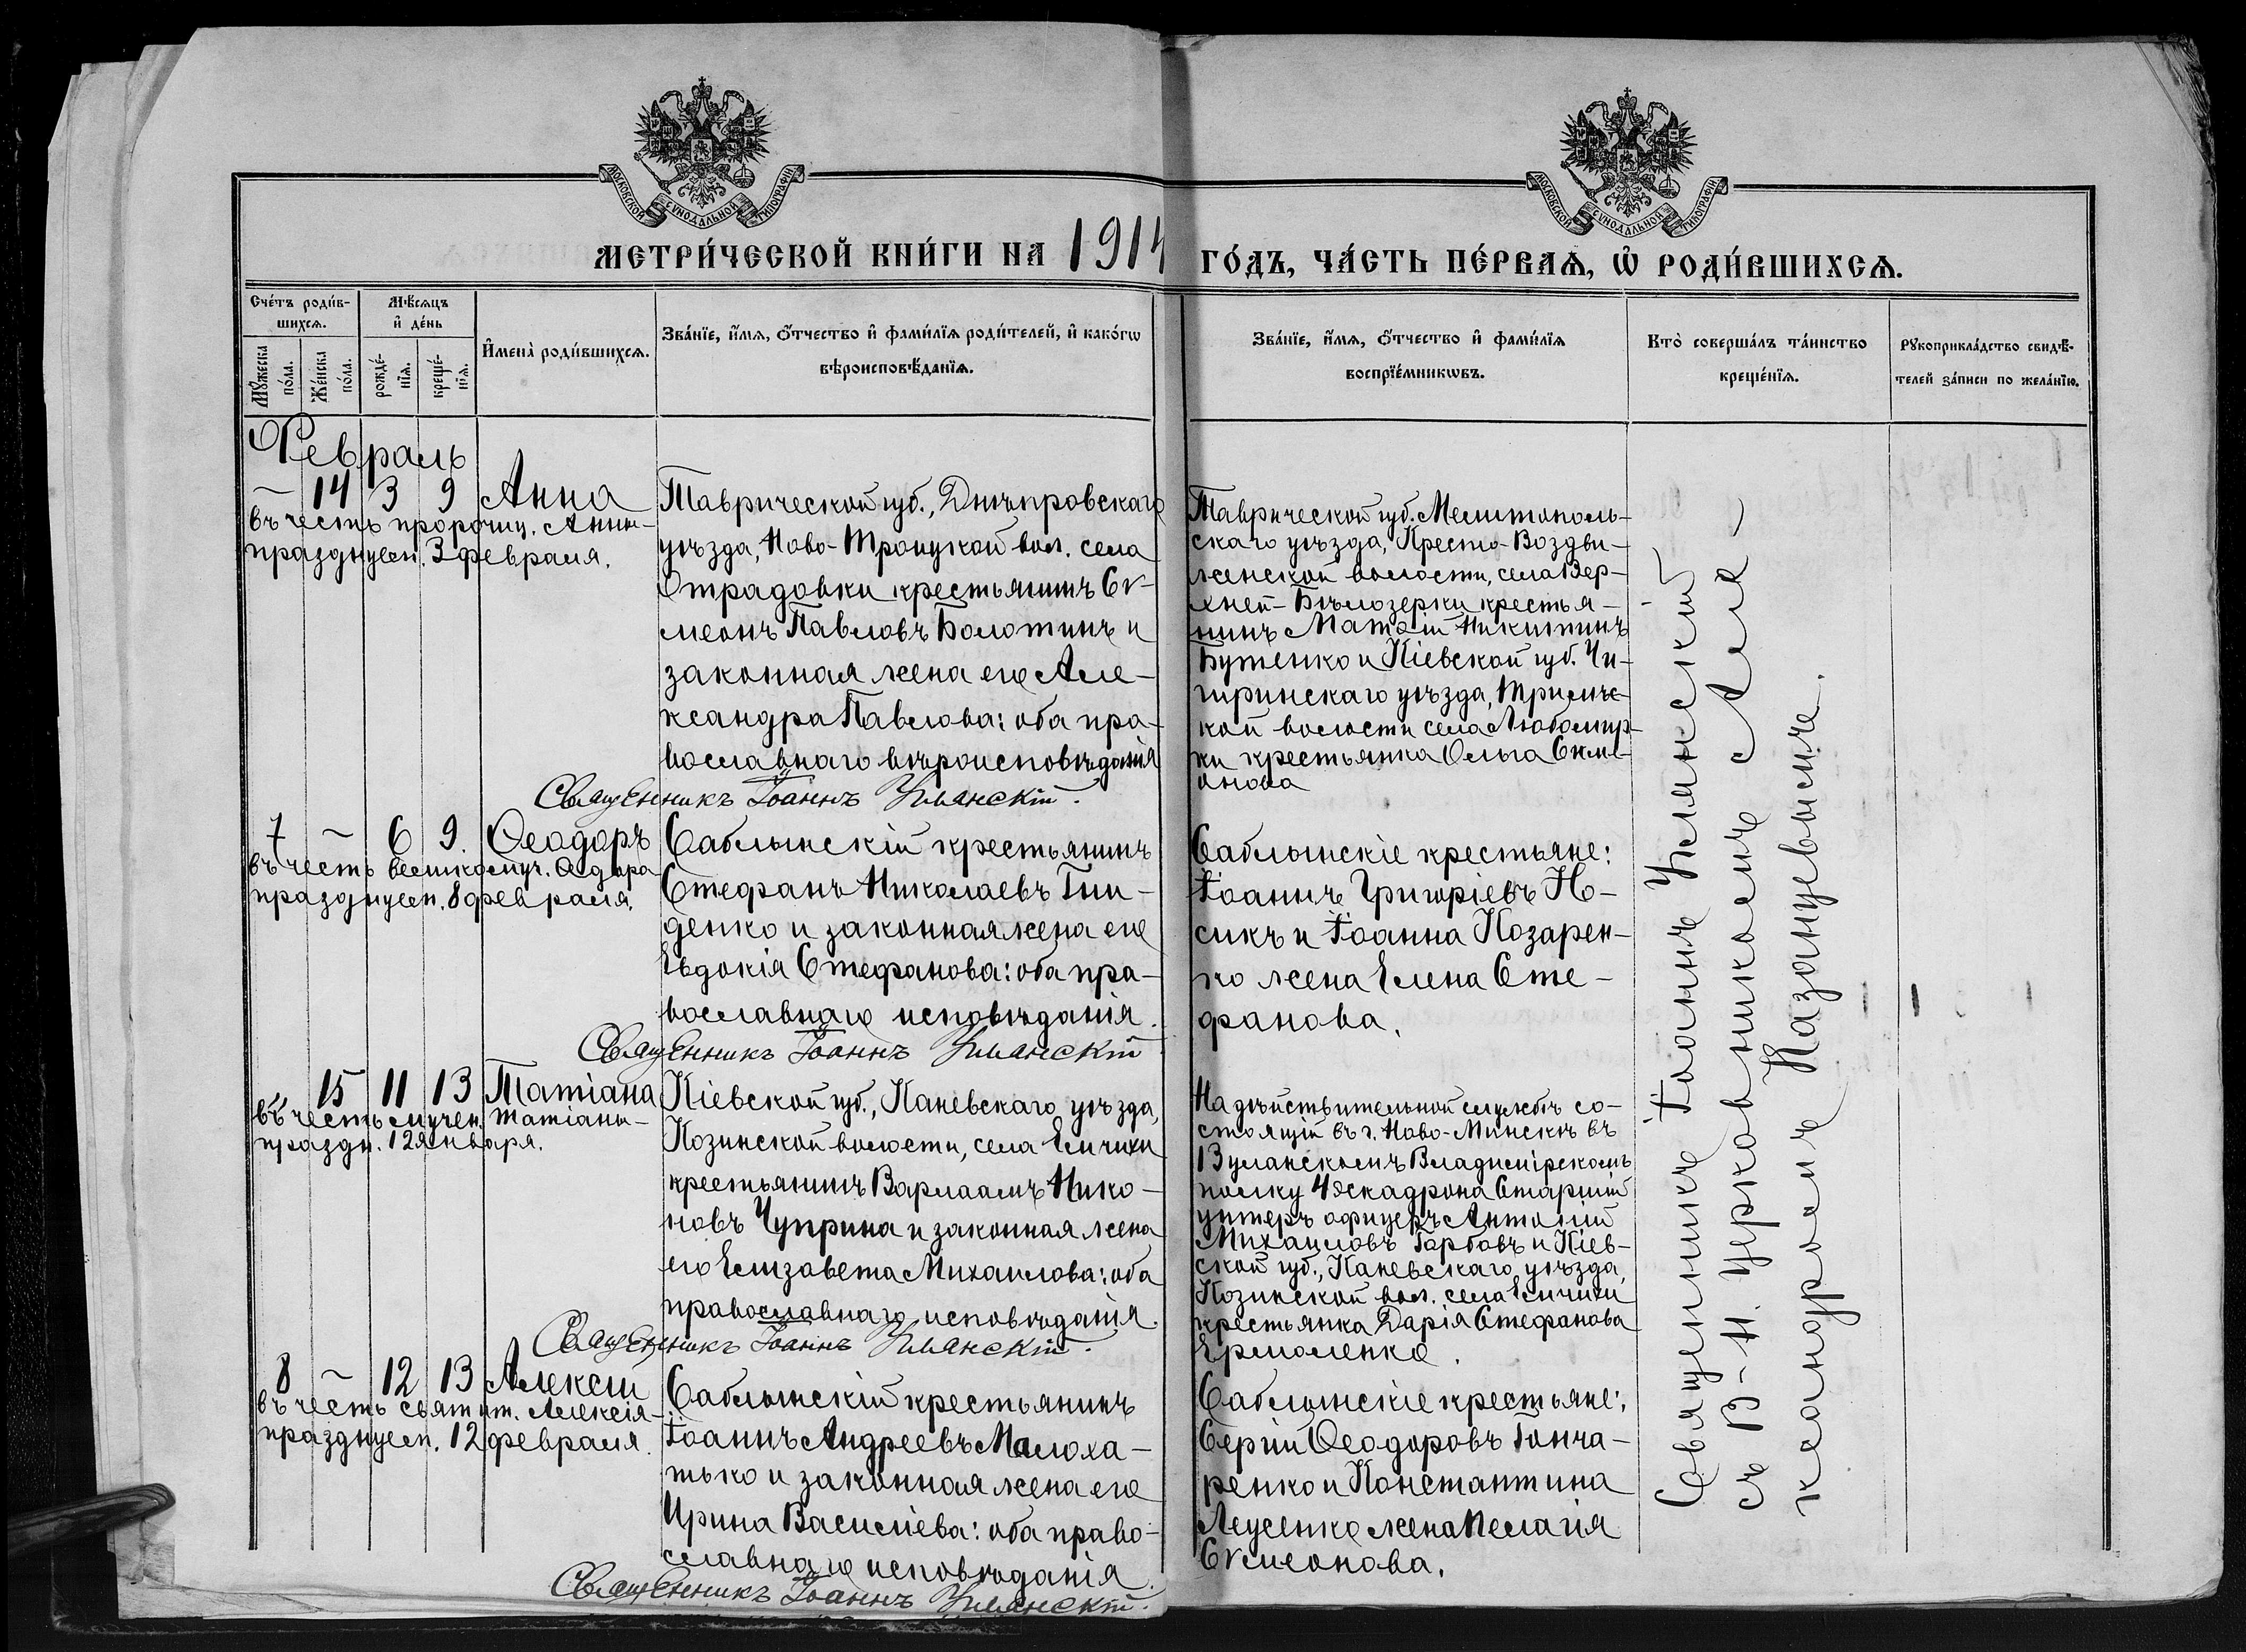 МОСКОВСКОЙ СѴНОДАЛЬНОЙ ТИПОГРАФІИ
МОСКОВСКОЙ СѴНОДАЛЬНОЙ ТИПОГРАФІИ
МЕТРИ́ЧЕСКОЙ КНИ́ГИ НА 1914 ГО́ДЪ, ЧА́СТЬ ПЕ́РВАѦ, Ѡ҆ РОДИ́ВШИХСѦ.
Сче́тъ роди́в-
шихсѧ.
Мѣ́сѧцъ
и҆ де́нь
Мꙋ́жеска
по́ла.
Же́нска
по́ла.
рожде́-
нїѧ.
креще́-
нїѧ.
И҆мена̀ роди́вшихсѧ.
Зва́нїе, и҆́мѧ, ѻ҆́тчество и҆ фами́лїѧ роди́телей, и҆ како́гѡ
вѣроисповѣ́данїѧ.
Зва́нїе, и҆́мѧ, ѻ҆́тчество и҆ фами́лїѧ
воспрїе́мникѡвъ.
Кто̀ соверша́лъ та́инство
креще́нїѧ.
Рꙋкоприкла́дство свидѣ́-
телей за́писи по жела́нїю.
Февраль
– 14 3 9 Анна
въ честь пророчиц. Анны-
празднуем. 3 февраля.
Таврической губ., Днѣпровскаго
уѣзда, Ново-Троицкой вол. села
Отрадовки крестьянинъ Сѵ-
меонъ Павловъ Болотинъ и
законная жена его Але-
ксандра Павлова: оба пра-
вославнаго вѣроисповѣданія
Священникъ Іоаннъ Уманскій.
Таврической губ. Мелитополь-
скаго уѣзда, Кресто-Воздви-
женской волости, села Вер-
хней-Бѣлозерки крестья-
нинъ Матѳій Никитинъ
Бутенко и Кіевской губ. Чи-
гиринскаго уѣзда,
кой волости села Любомир-
ки крестьянка Ольга Симе-
онова
7 – 6 9. Ѳеодоръ
въ честь великомуч. Ѳедора
празднуем. 8 февраля.
Саблынскій крестьянинъ
Стефанъ Николаевъ Гни-
денко и законная жена его
Евдокія Стефанова: оба пра-
вославнаго исповѣданія.
Священникъ Іоаннъ Уманскій
Саблынскіе крестьяне:
Іоаннъ Григоріевъ Но-
сикъ и Іоанна Козарен-
ко жена Елена Сте-
фанова.
15 11 13 Татіана
въ честь мучен. Татіаны-
праздн. 12 января.
Кіевской губ., Каневскаго уѣзда,
Козинской волости, села Емчихи
крестьянинъ Варлаамъ Нико-
новъ Чуприна и законная жена
его Елизавета Михаилова: оба
православнаго исповѣданія.
Священникъ Іоаннъ Уманскій.
На дѣйствительной службѣ со-
стоящій въ г. Ново-Минскѣ въ
13 уланскомъ Владимірскомъ
полку 4 эскадрона Старшій
унтеръ офицеръ Антоній
Михаиловъ Гарбовъ и Кіев-
ской губ., Каневскаго уѣзда,
Козинской вол. села Емчихи
крестьянка Дарія Стефанова
Ермоленко.
8 – 12 13 Алексій
въ честь святит. Алексія-
празднуем. 12 февраля.
Саблынскій крестьянинъ
Іоаннъ Андреевъ Малоха-
тько и законная жена его
Ирина Василіева: оба право-
славнаго исповѣданія.
Священникъ Іоаннъ Уманскій.
Саблынскіе крестьяне:
Сергій Ѳеодоровъ Гонча-
ренко и Константина
Леусенко жена Пелагія
Сѵмеонова.
Священникъ Іоаннъ Уманскій
съ церковникомъ Але-
ксандромъ Казанцевымъ.